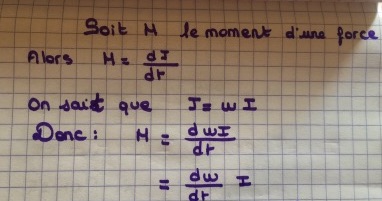 Soit M le moment d'une force
Alors M = dJ/dt
on sait que J = w I
Donc : M = dwI/dt
= dw/dt I